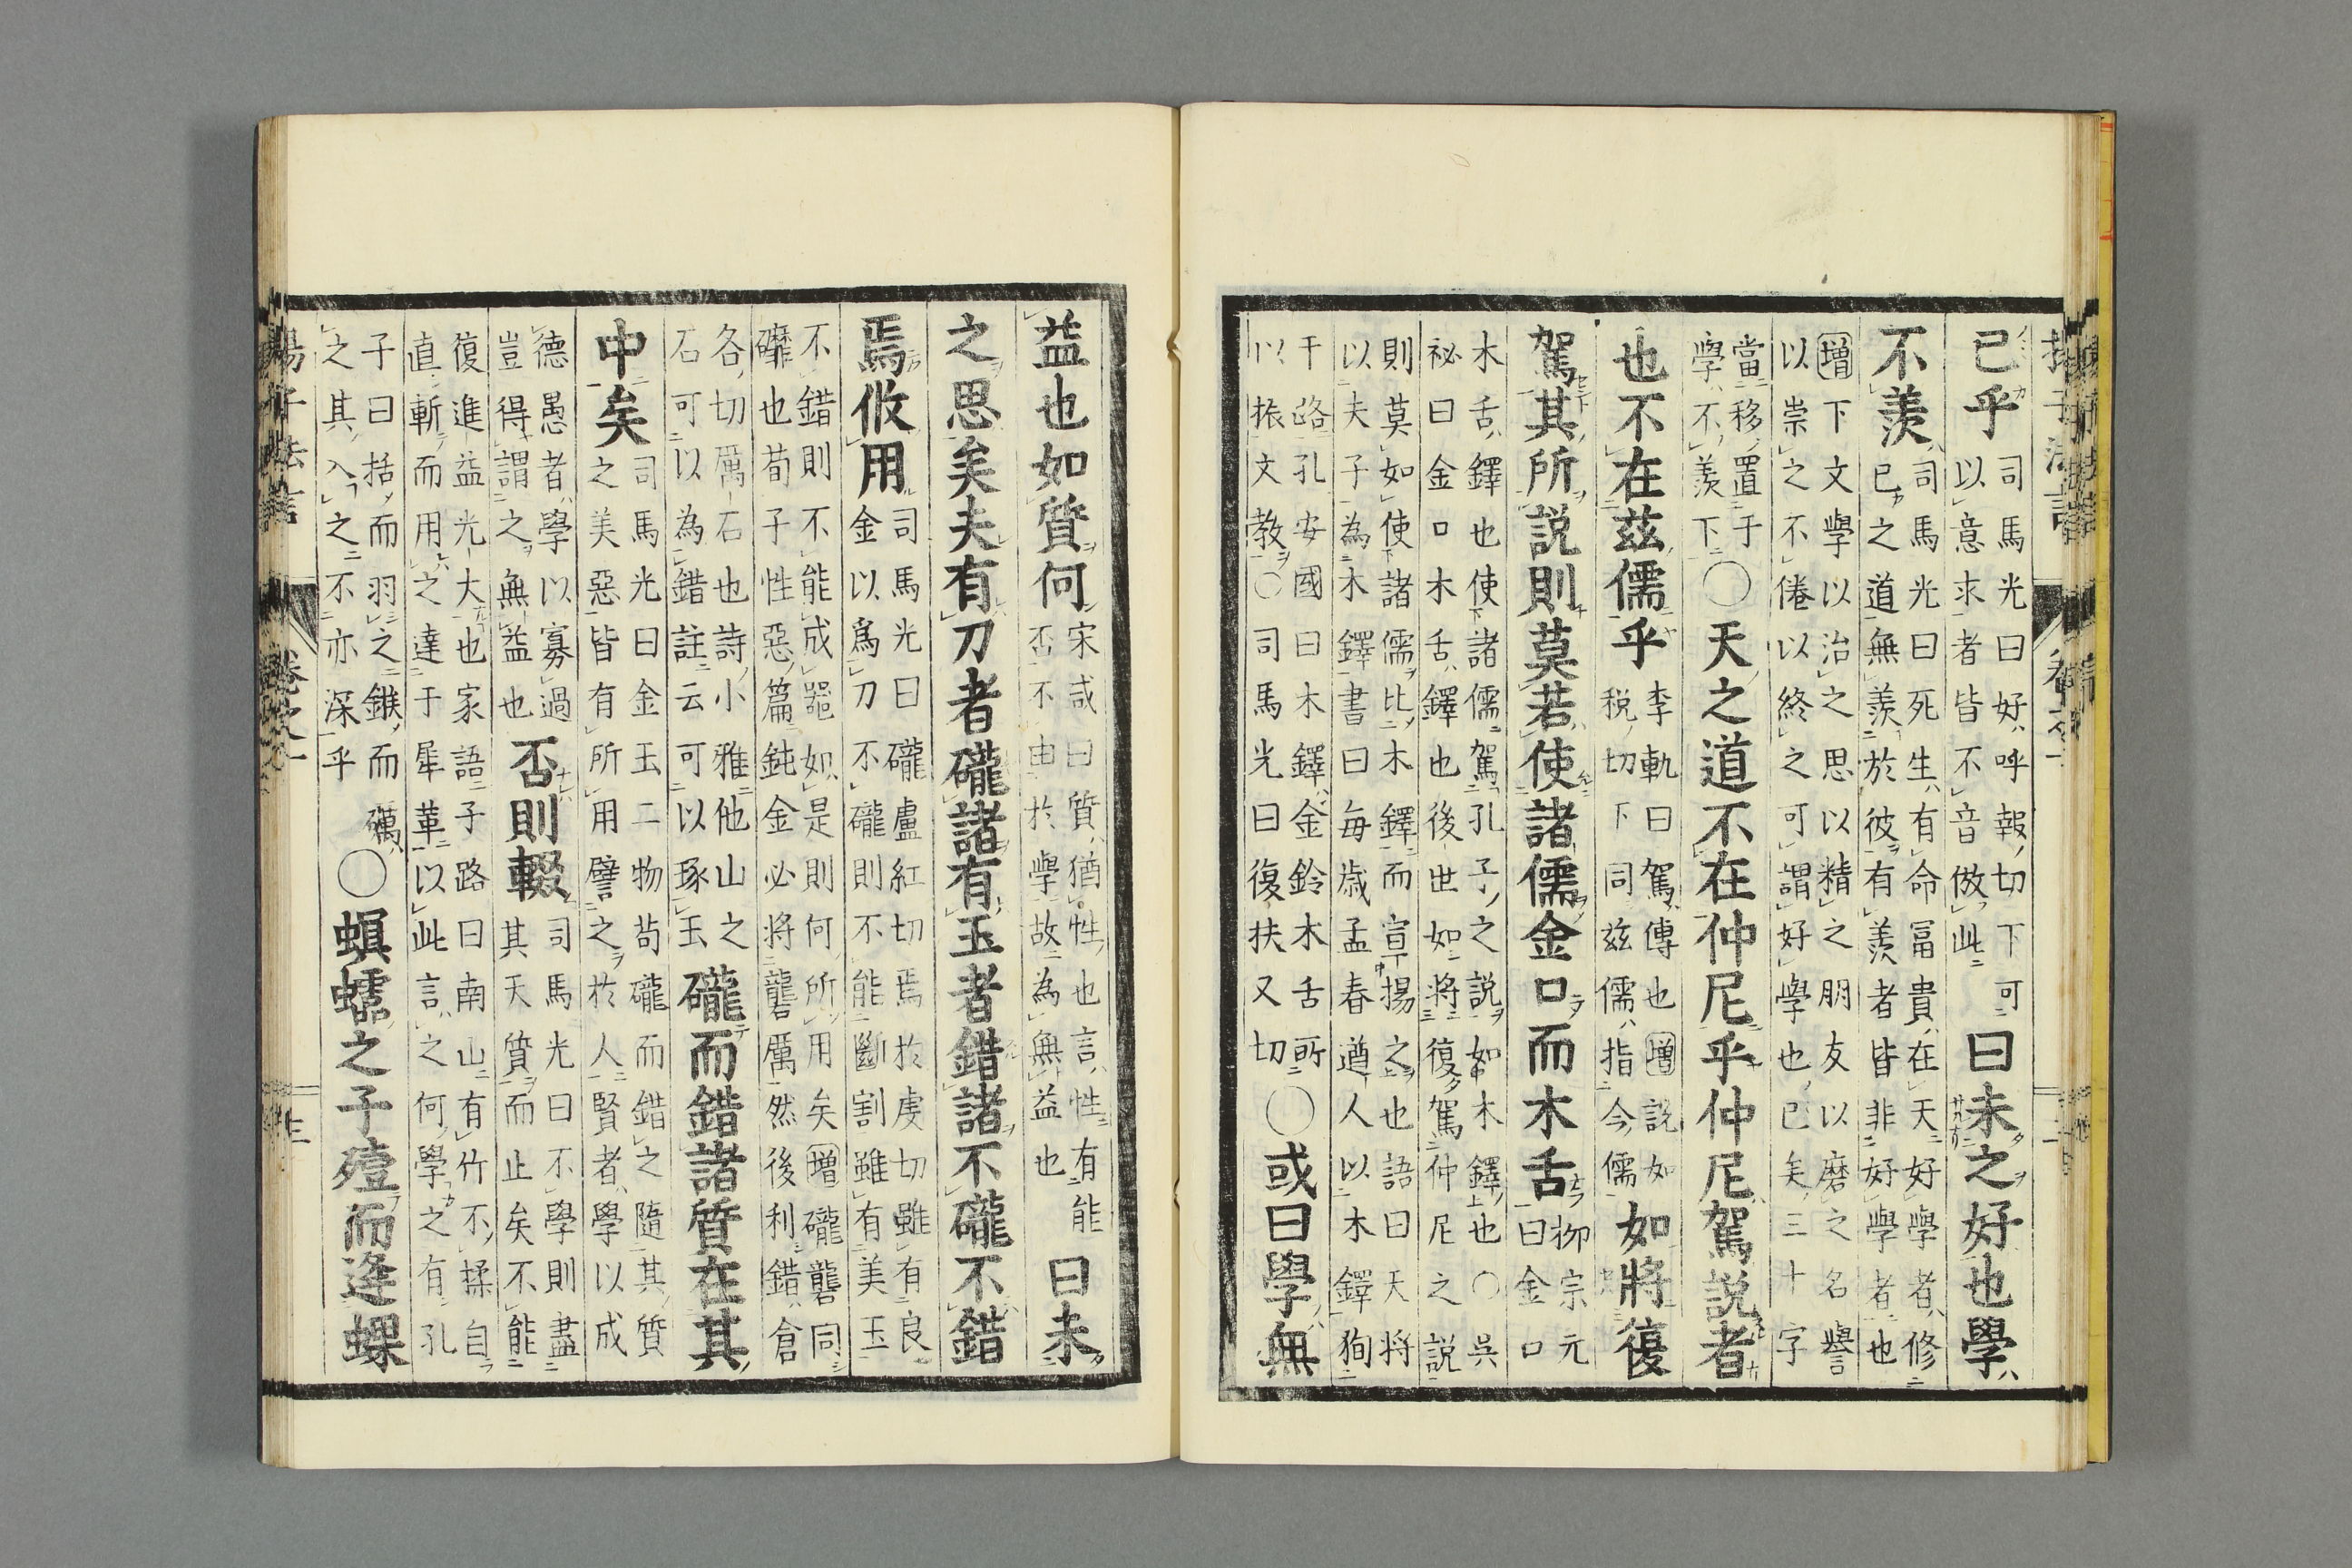 已乎司馬光曰好呼報切下可以意求者皆不音倣此曰未之好也學
不羨司馬光曰死生有命冨貴在天好學者修已之道無羨於彼有羨者皆非好學者也
增下文學以治之思以精之朋友以磨之名譽以崇之不倦以終之可謂好學也已矣三十字
當移置于學不羨下〇天之道不在仲尼乎仲尼駕説者
也不在茲儒乎李軌曰駕傳也增説如税切下同兹儒指今儒如將復
駕其所説則莫若使諸儒金口而木舌栁宗元曰金口
木舌鐸也使諸儒駕孔子之説如木鐸也〇吳祕曰金口木舌鐸也後世如將復駕仲尼之説
則莫如使諸儒比木鐸而宣揚之也語曰天将以夫子為木鐸書曰毎歳孟春遒人以木鐸狥
于路孔安國曰木鐸金鈴木舌所以振文教〇司馬光曰復扶又切〇或曰學無
益也如質何宋咸曰質猶性也言性有能否不由於學故為無益也曰未
之思矣夫有刀者礲諸有玉者錯諸不礲不錯
焉攸用司馬光曰礲盧紅切焉於虔切雖有良金以爲刀不礲則不能斷割雖有美玉
不錯則不能成噐如是則何所用矣增礲礱同礳也荀子性惡篇鈍金必将礱厲然後利錯倉
各切厲石也詩小雅他山之石可以為錯註云可以琢玉礲而錯諸質在其
中矣司馬光曰金玉二物苟礲而錯之隨其質之美惡皆有所用譬之於人賢者學以成
德愚者學以寡過豈得謂之無益也否則輟司馬光曰不學則盡其天質而止矣不能
復進益光大也家語子路曰南山有竹不揉自直斬而用之達于犀革以此言之何學之有孔
子曰括而羽之鏃而礪之其入之不亦深乎〇螟蠕之子殪而逢蜾